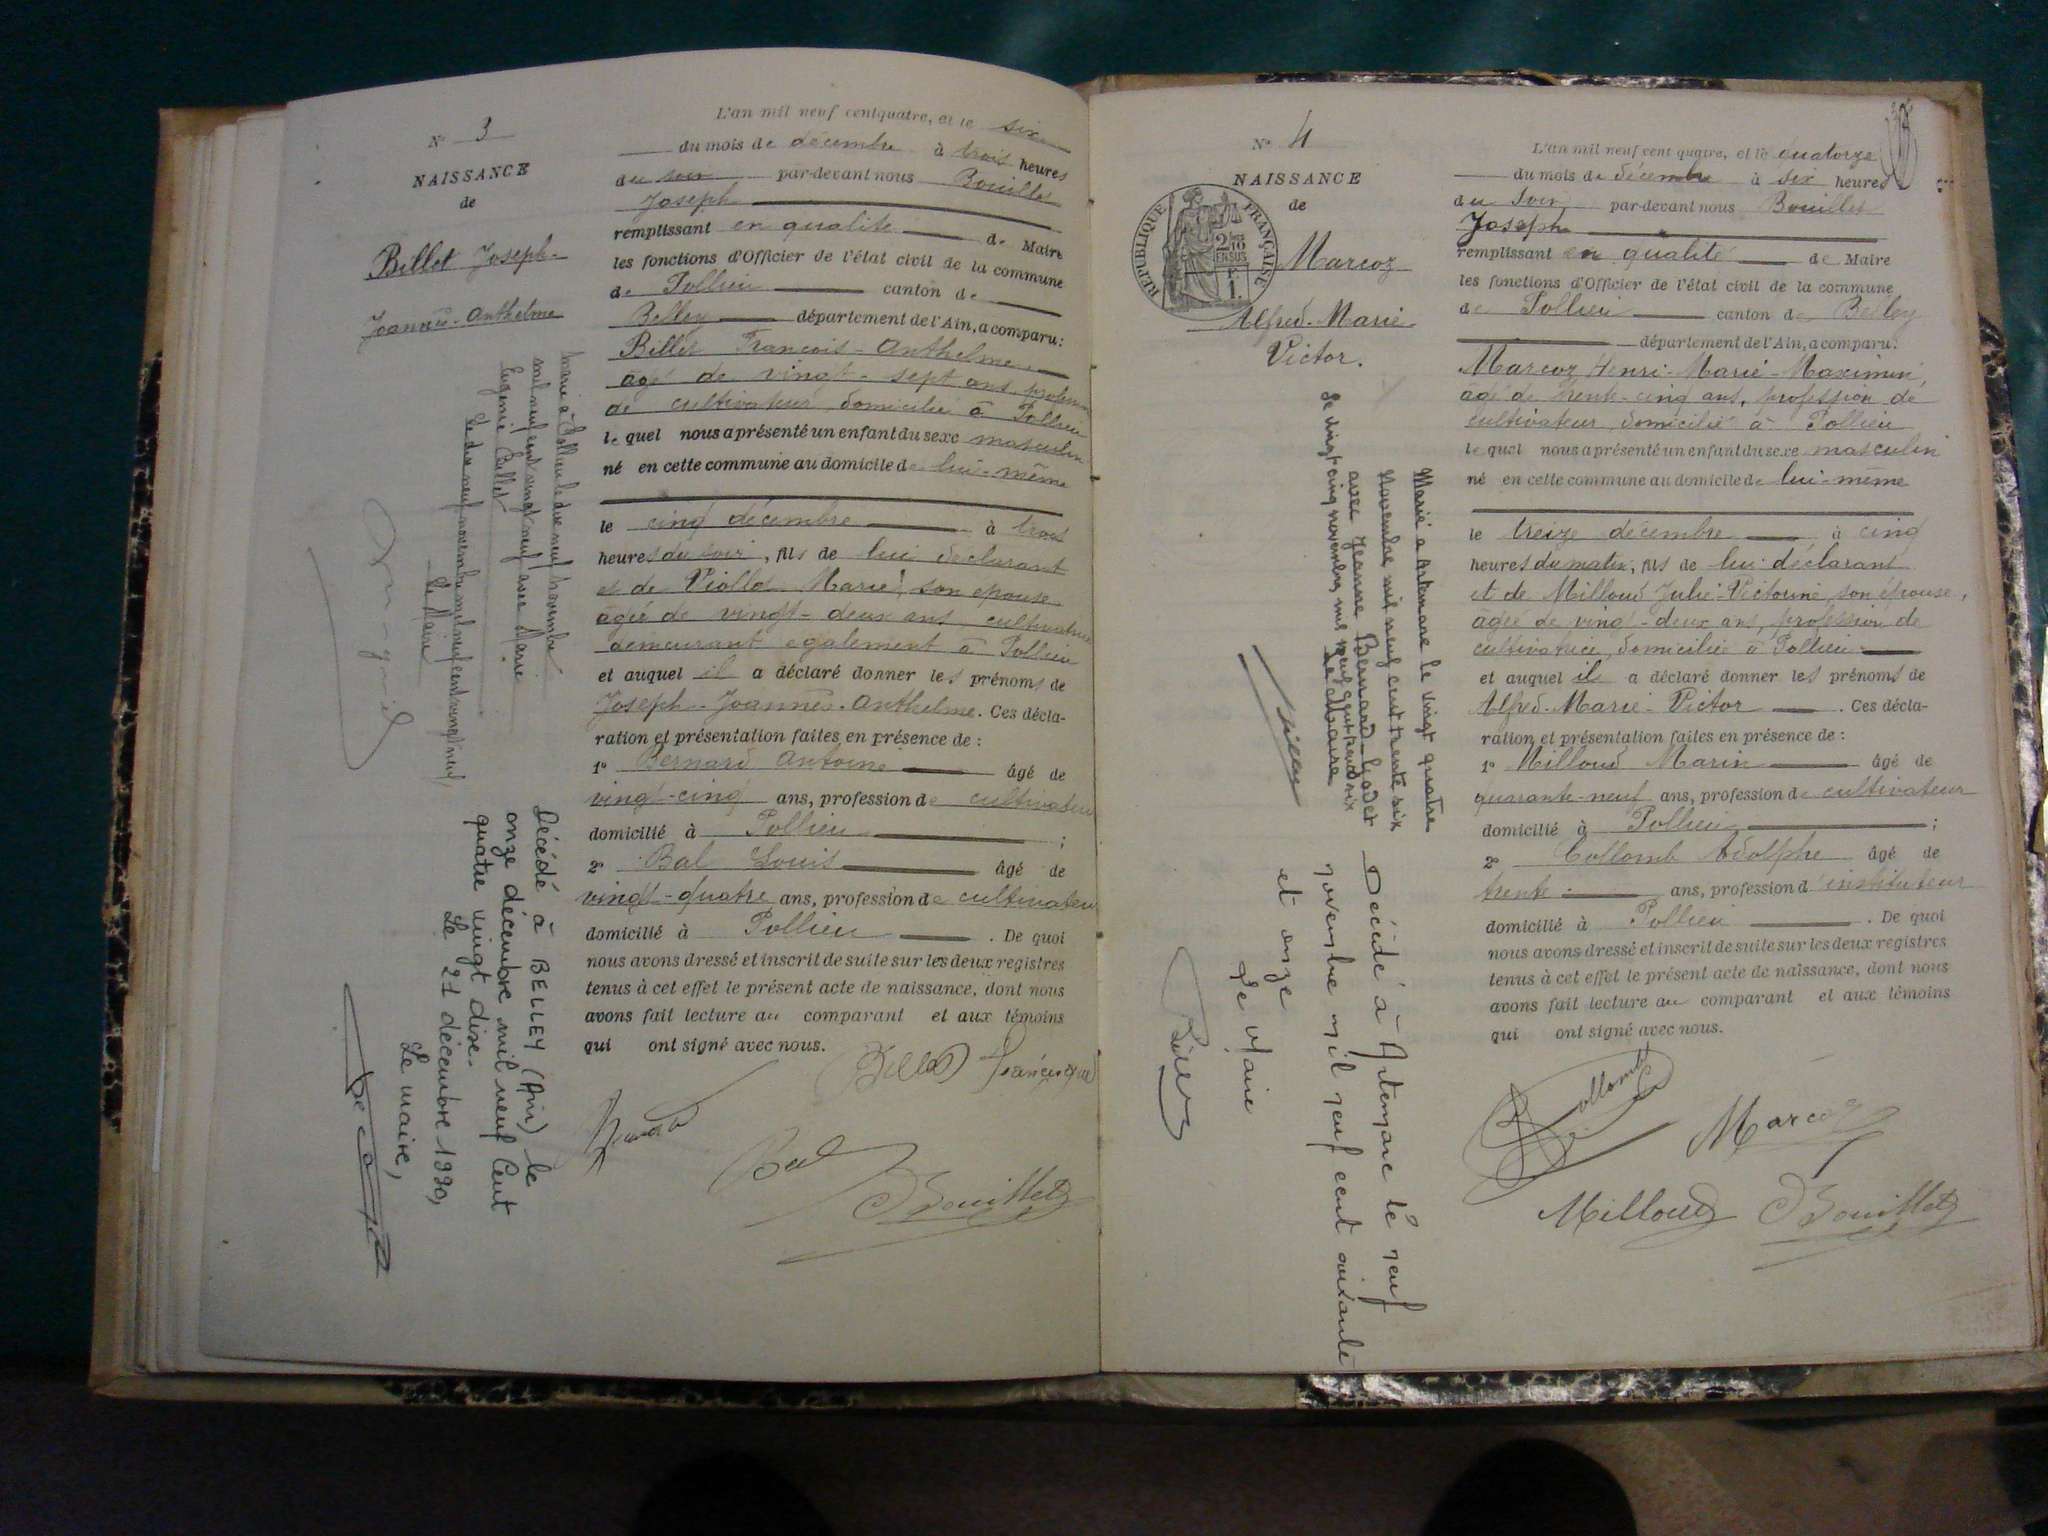 N° 3
NAISSANCE
de
Billet Joseph-
Joannès-Anthelme
marié à Pollieu le dix neuf novembre
mil neuf cent vingt neuf avec Marie
Eugénie Cullet
Le dix neuf novembre mil neuf cent vingt neuf
Le Maire
Décédé à BELLEY (Ain) le
onze décembre mil neuf cent
quatre vingt dix.
Le 21 décembre 1990,
Le maire,
L'an mil neuf cent quatre, et le six
du mois de décembre à trois heures
du soir par-devant nous Bouillet
Joseph
remplissant en qualité de Maire
les fonctions d'Officier de l'état civil de la commune
de Pollieu canton de
Belley département de l'Ain, a comparu:
Billet François-Anthelme,
âgé de vingt-sept ans, profession
de cultivateur, domicilié à Pollieu
lequel nous a présenté un enfant du sexe masculin
né en cette commune au domicile de lui-même
le cinq décembre à trois
heures du soir, fils de lui déclarant
et de Viollet Marie, son épouse
âgée de vingt-deux ans, cultivatrice
demeurant également à Pollieu
et auquel il a déclaré donner les prénoms de
Joseph-Joannès-Anthelme. Ces décla-
ration et présentation faites en présence de:
1° Bernard Antoine âgé de
vingt-cinq ans, profession de cultivateur
domicilié à Pollieu;
2° Bal Louis âgé de
vingt-quatre ans, profession de cultivateur
domicilié à Pollieu. De quoi
nous avons dressé et inscrit de suite sur les deux registres
tenus à cet effet le présent acte de naissance, dont nous
avons fait lecture au comparant et aux témoins
qui ont signé avec nous.
Billet
Bal
Bouillet
N° 4
NAISSANCE
de
RÉPUBLIQUE FRANÇAISE
2/10 EN SUS
Marcoz
Alfred-Marie-
Victor.
Marié à Artemare le vingt quatre
Novembre mil neuf cent trente six
avec Jeanne Bernard-Godet
Le vingt cinq novembre mil neuf cent trente six
Le Maire
Décédé à Artemare le neuf
novembre mil neuf cent soixante
et onze
Le Maire
L'an mil neuf cent quatre, et le quatorze
du mois de décembre à six heures
du soir par-devant nous Bouillet
Joseph
remplissant en qualité de Maire
les fonctions d'Officier de l'état civil de la commune
de Pollieu canton de Belley
département de l'Ain, a comparu:
Marcoz Henri-Marie-Maximin,
âgé de trente-cinq ans, profession de
cultivateur, domicilié à Pollieu
lequel nous a présenté un enfant du sexe masculin
né en cette commune au domicile de lui-même
le treize décembre à cinq
heures du matin, fils de lui déclarant
et de Milloud Julie-Victorine, son épouse,
âgée de vingt-deux ans, profession de
cultivatrice, domiciliée à Pollieu
et auquel il a déclaré donner les prénoms de
Alfred-Marie-Victor. Ces décla-
ration et présentation faites en présence de:
1° Milloud Marin âgé de
quarante-neuf ans, profession de cultivateur
domicilié à Pollieu;
2° Collomb Adolphe âgé de
trente ans, profession d'instituteur
domicilié à Pollieu. De quoi
nous avons dressé et inscrit de suite sur les deux registres
tenus à cet effet le présent acte de naissance, dont nous
avons fait lecture au comparant et aux témoins
qui ont signé avec nous.
Collomb
Marcoz
Milloud
Bouillet